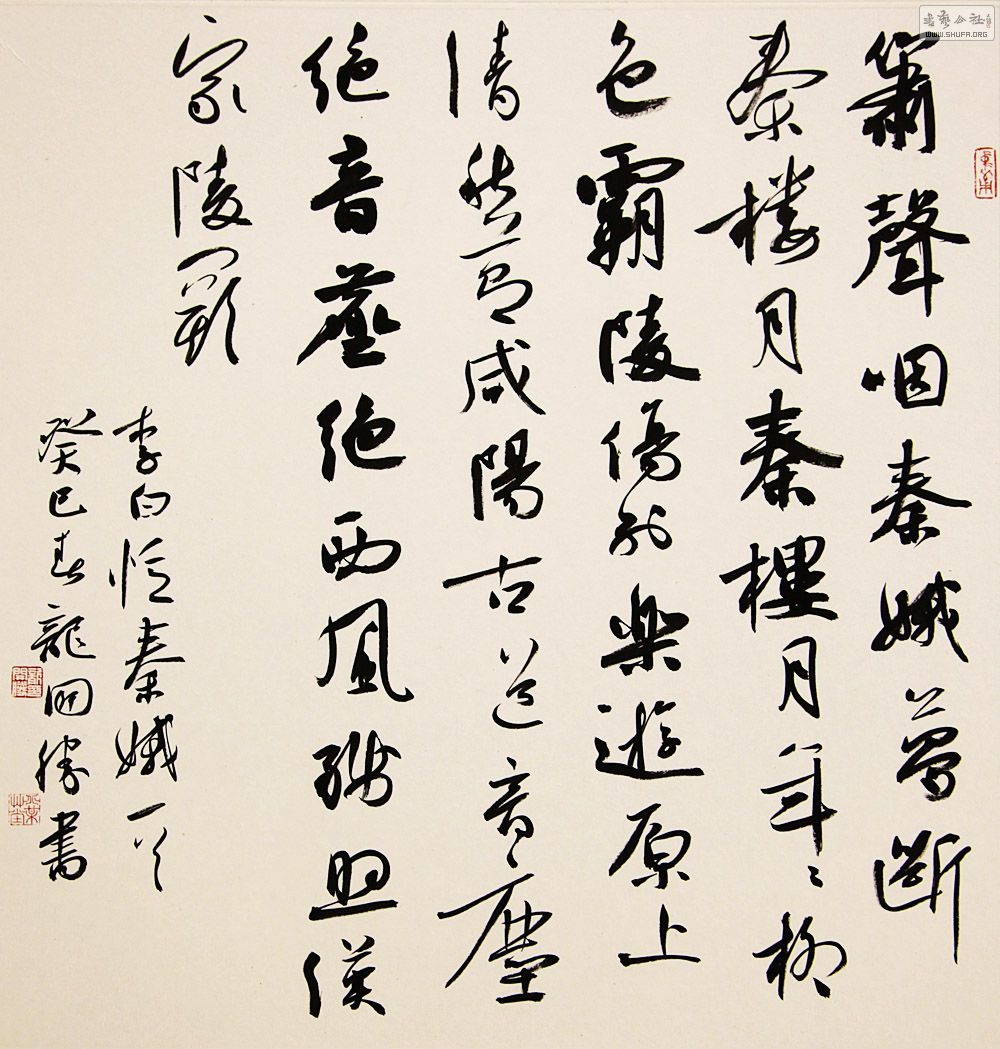 簫聲咽秦娥夢斷
秦楼月秦樓月年〻柳
色霸陵傷別樂遊原上
清秋節咸陽古道音〻塵
絶音塵絶西風殘照漢
家陵闕
李白憶秦娥一首
癸巳春龍開勝書
書藝公社
WWW.SHUFA.ORG